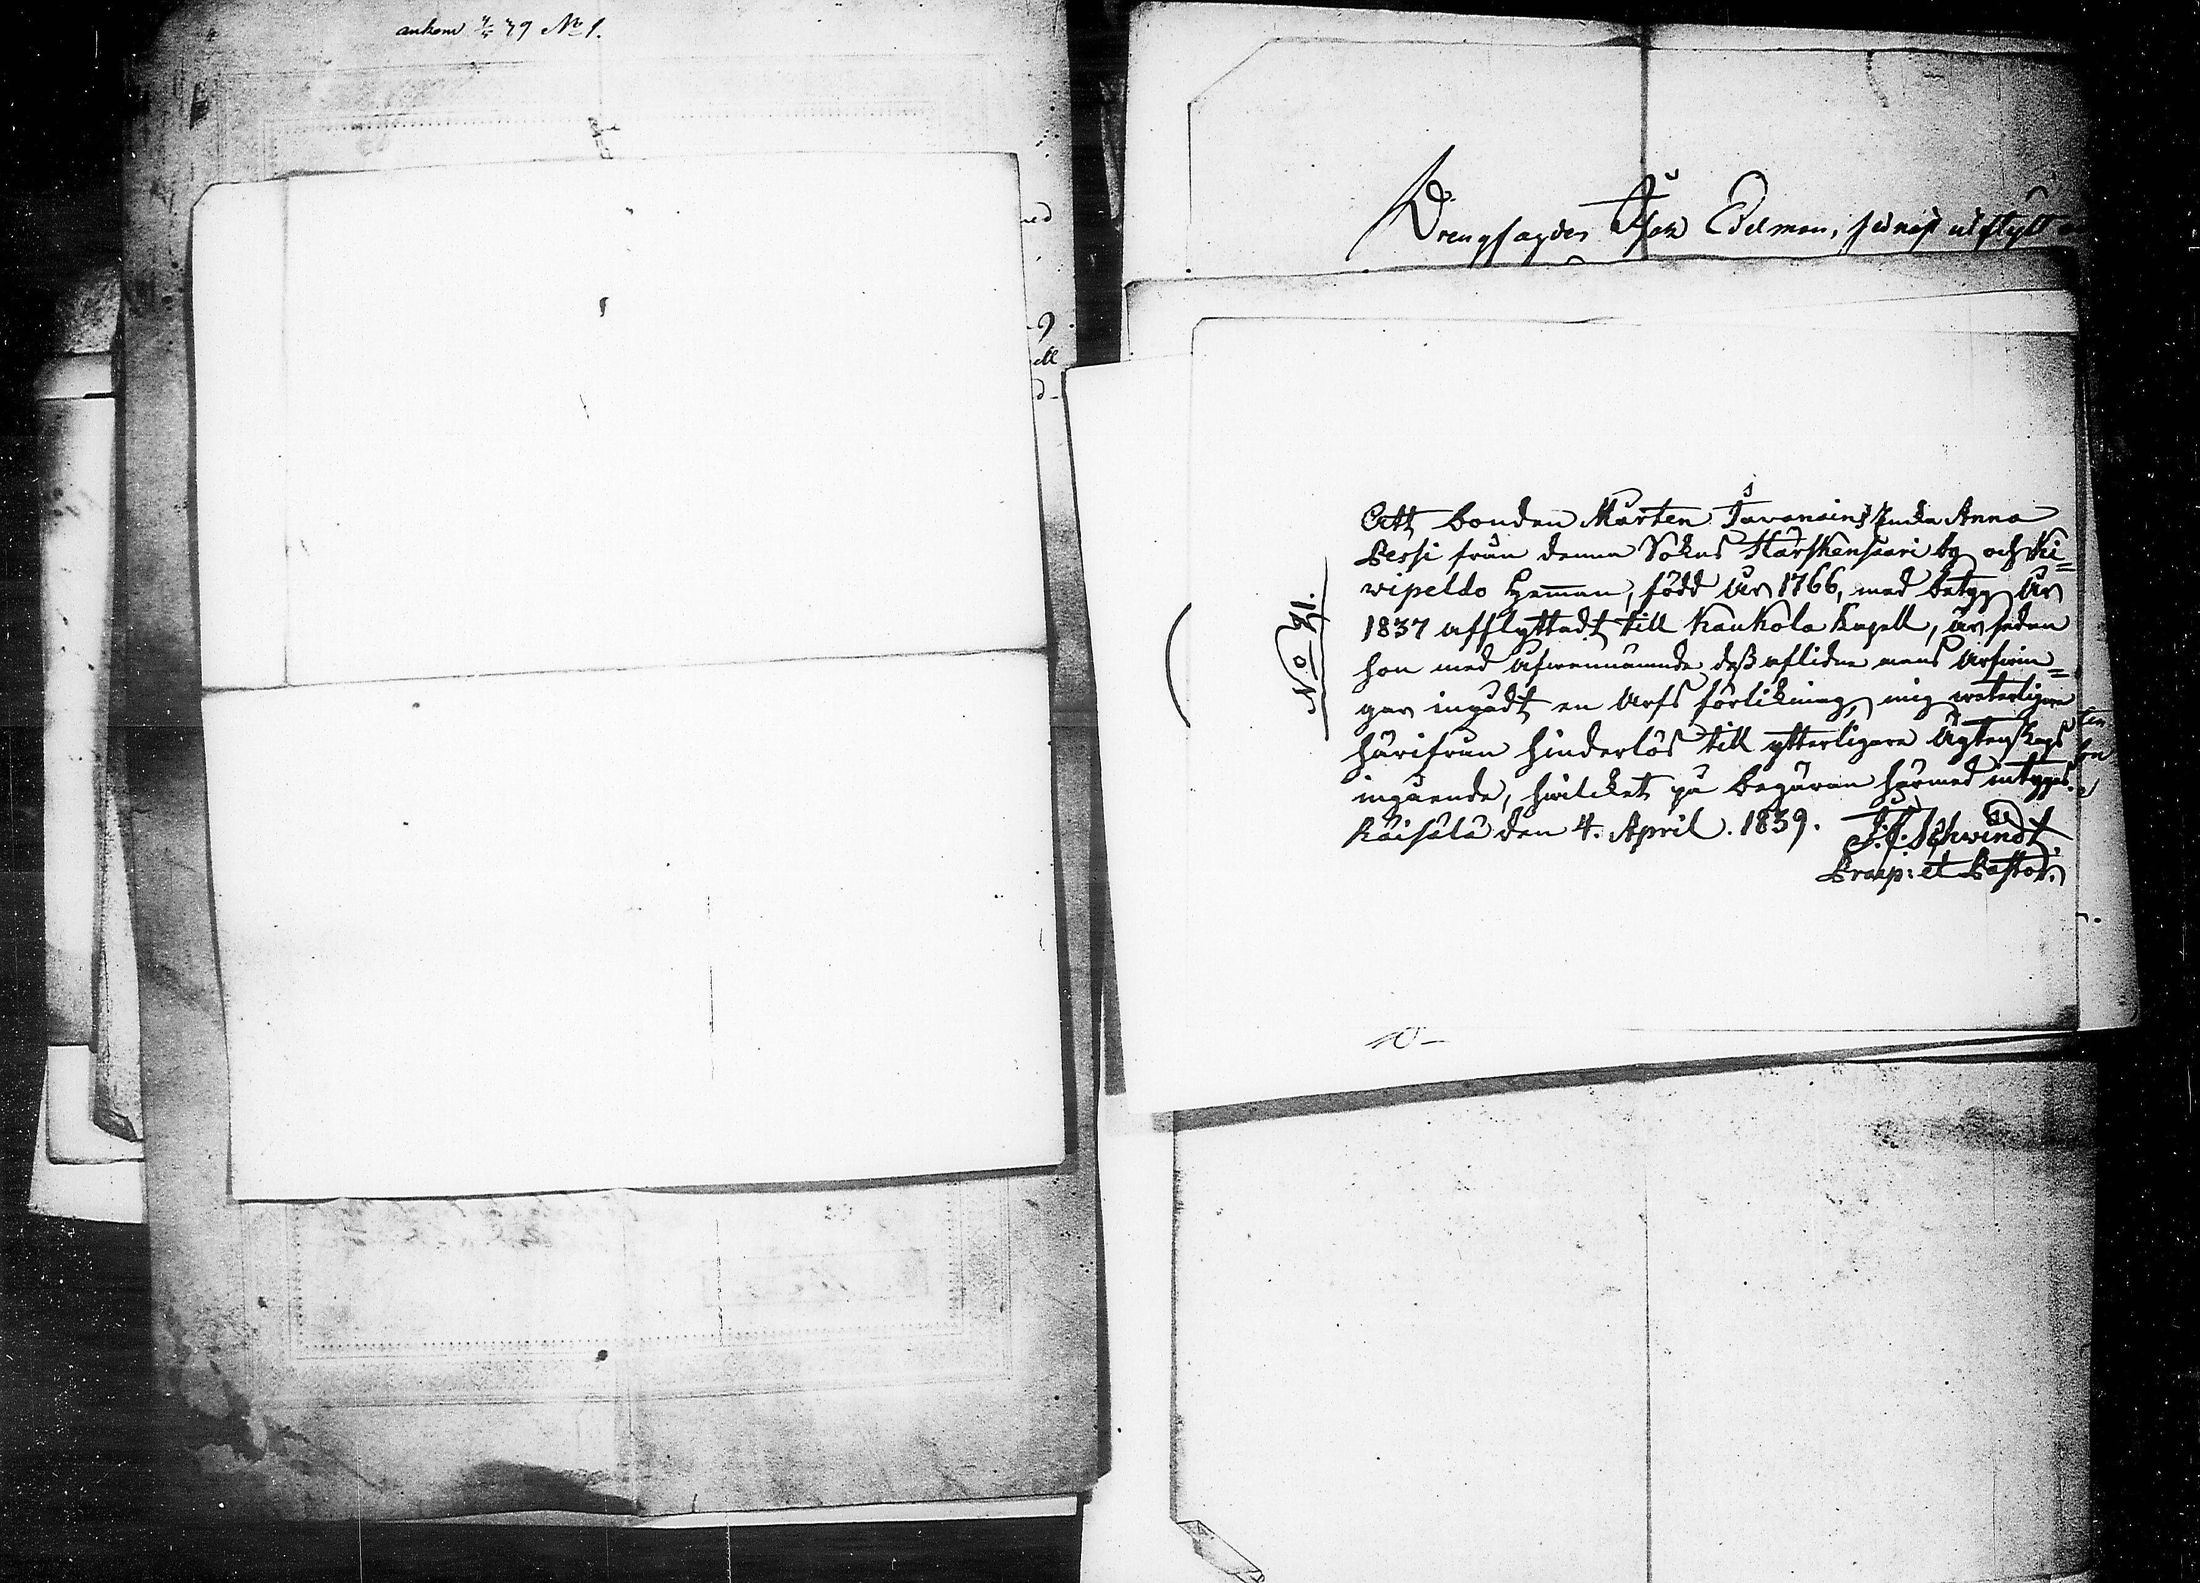 ankom 7/4 39 No 1.
Drengfogden Isak Edelman, sednast utflytt
No 71.
Att bonden Mårten Tavanains Enka Anna
Pessi från denna Sokns Harskensaari by och Ki=
wipeldo Hemman, född år 1766, med betyg år
1837 afflyttadt till Kaukola Kapell, är sedan
hon med ofwannämnde dess aflidne mans arfwin=
gar ingådt en Arfs förlikning, mig weterligen
härifrån hinderlös till ytterligare Ägtenskaps
ingående, hwilcket på begäran härmed intygas.
Räisälä den 4. April. 1839. J. F. Schwindt
Praep: et Pastor.
10 –